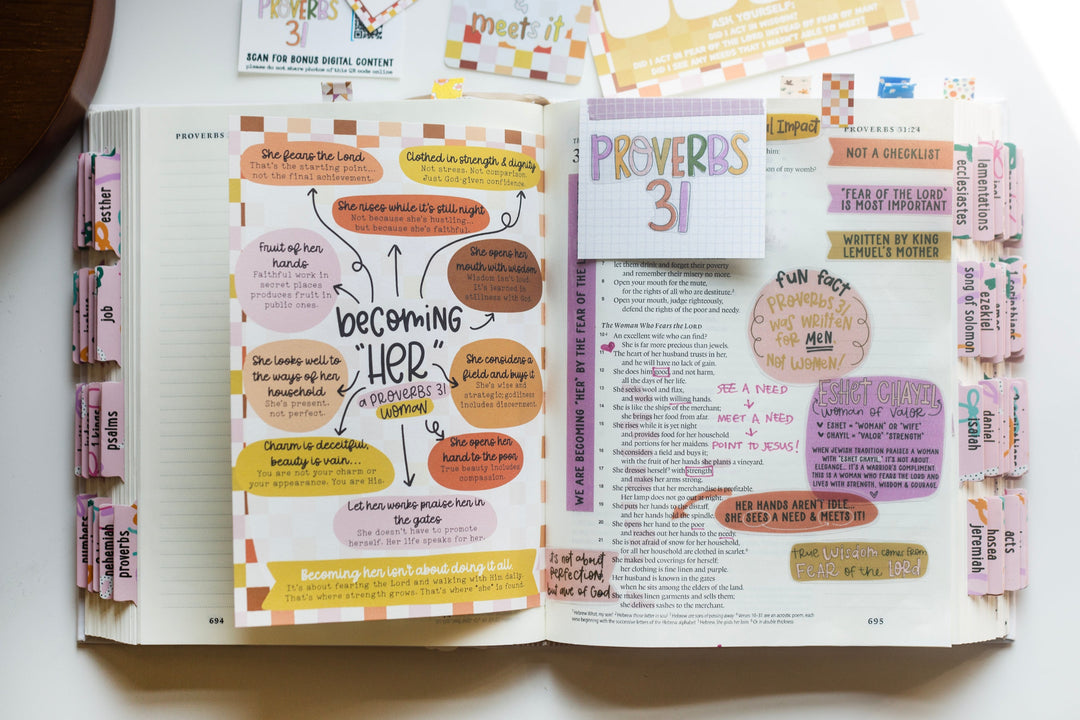 PROVERBS
31
SCAN FOR BONUS DIGITAL CONTENT
please do not share photos of this QR code online
&
meets it
ASK YOURSELF:
DID I ACT IN WISDOM?
DID I ACT IN FEAR OF THE LORD INSTEAD OF FEAR OF MAN?
DID I SEE ANY NEEDS THAT I WASN'T ABLE TO MEET?
PROVERBS
esther
job
psalms
numbers
nehemiah
proverbs
She fears the Lord
That's the starting point...
not the final achievement.
Clothed in strength & dignity
Not stress. Not comparison.
Just God-given confidence.
She rises while it's still night
Not because she's hustling...
but because she's faithful.
Fruit of her
hands
Faithful work in
secret places
produces fruit in
public ones.
She opens her
mouth with wisdom
Wisdom isn't loud.
It's learned in
stillness with God.
becoming
"HER"
a PROVERBS 31
WOMAN
She looks well to
the ways of her
household
She's present,
not perfect.
She considers a
field and buys it
She's wise and
strategic; godliness
includes discernment.
Charm is deceitful,
beauty is vain...
You are not your charm or
your appearance. You are His.
She opens her
hand to the poor
True beauty includes
compassion.
Let her works praise her in
the gates
She doesn't have to promote
herself. Her life speaks for her.
Becoming her isn't about doing it all
It's about fearing the Lord and walking with Him daily.
That's where strength grows. That's where "she" is found.
694
PROVERBS
31
al Impact
PROVERBS 31:24
NOT A CHECKLIST
"FEAR OF THE LORD"
IS MOST IMPORTANT
WRITTEN BY KING
LEMUEL'S MOTHER
WE ARE BECOMING "HER" BY THE FEAR OF THE
him:
son of my womb?
7 let them drink and forget their poverty
and remember their misery no more.
8 Open your mouth for the mute,
for the rights of all who are destitute.
9 Open your mouth, judge righteously,
defend the rights of the poor and needy.
The Woman Who Fears the LORD
10 An excellent wife who can find?
She is far more precious than jewels.
11 The heart of her husband trusts in her,
and he will have no lack of gain.
12 She does him good, and not harm,
all the days of her life.
13 She seeks wool and flax,
and works with willing hands.
14 She is like the ships of the merchant;
she brings her food from afar.
15 She rises while it is yet night
and provides food for her household
and portions for her maidens.
16 She considers a field and buys it;
with the fruit of her hands she plants a vineyard.
17 She dresses herself with strength
and makes her arms strong.
18 She perceives that her merchandise is profitable.
Her lamp does not go out at night.
19 She puts her hands to the distaff,
and her hands hold the spindle.
20 She opens her hand to the poor
and reaches out her hands to the needy.
21 She is not afraid of snow for her household,
for all her household are clothed in scarlet.
She makes bed coverings for herself;
her clothing is fine linen and purple.
Her husband is known in the gates
when he sits among the elders of the land.
She makes linen garments and sells them;
she delivers sashes to the merchant.
fun fact
PROVERBS 31
was written
for MEN
NOT WOMEN!
SEE A NEED
MEET A NEED
POINT TO JESUS!
ESHET CHAYIL
woman of valor
ESHET = "WOMAN" OR "WIFE"
CHAYIL = "VALOR" "STRENGTH"
WHEN JEWISH TRADITION PRAISES A WOMAN
WITH "ESHET CHAYIL", IT'S NOT ABOUT
ELEGANCE... IT'S A WARRIOR'S COMPLIMENT.
THIS IS A WOMAN WHO FEARS THE LORD AND
LIVES WITH STRENGTH, WISDOM & COURAGE
HER HANDS AREN'T IDLE...
SHE SEES A NEED & MEETS IT!
true WISDOM comes from
FEAR of the LORD
it's not about
perfection,
but awe of God
695
ecclesiastes
lamentations
song of solomon
ezekiel
amos
isaiah
daniel
jeremiah
hosea
acts